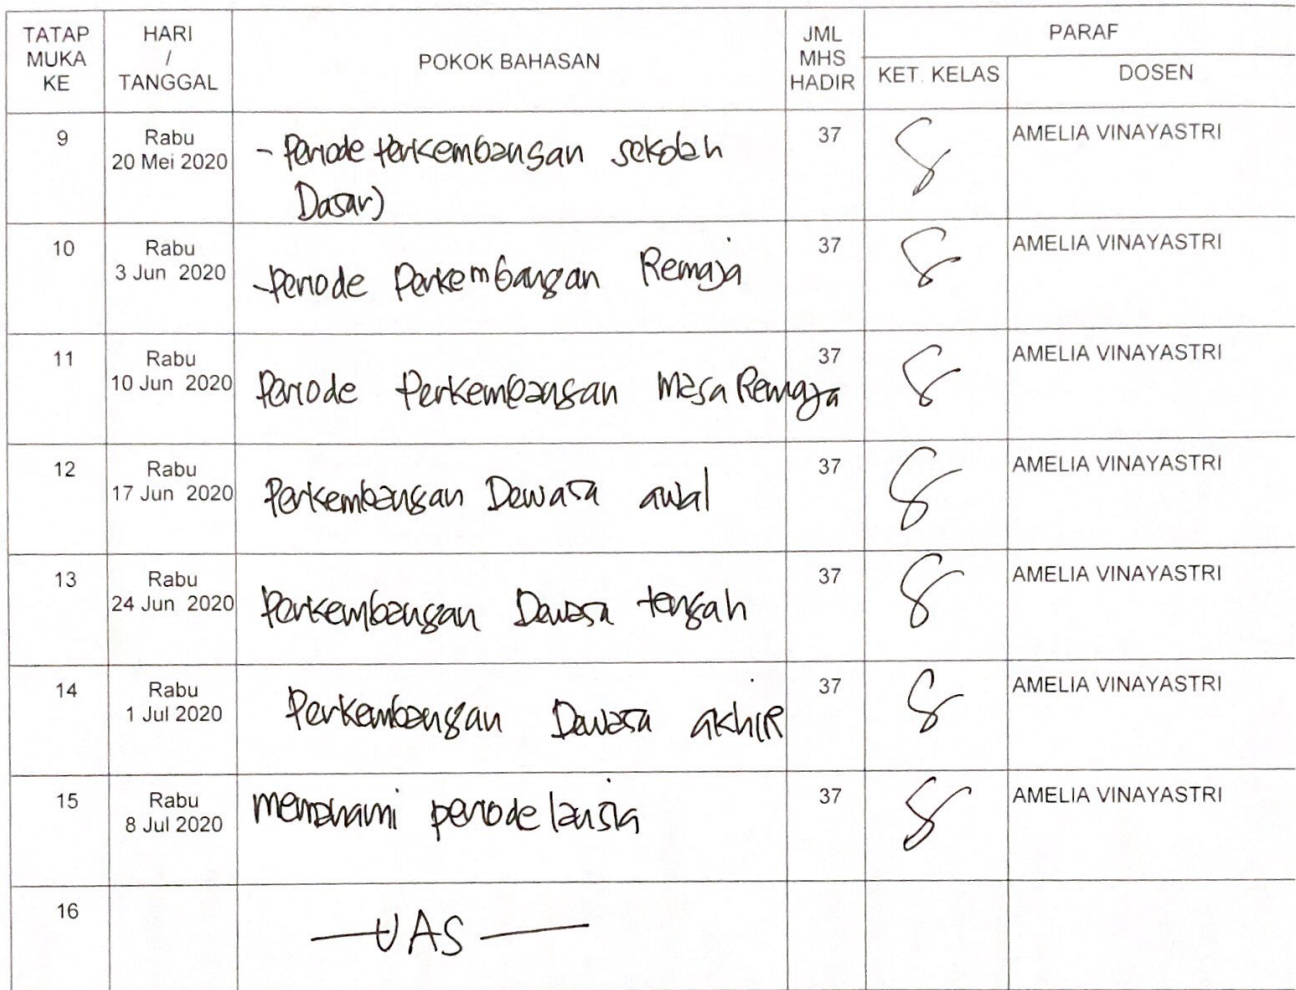 TATAP MUKA KE HARI / TANGGAL POKOK BAHASAN JML MHS HADIR PARAF
KET. KELAS DOSEN
9 Rabu 20 Mei 2020 - Periode Perkembangan sekolah Dasar) 37 AMELIA VINAYASTRI
10 Rabu 3 Jun 2020 - Periode Perkembangan Remaja 37 AMELIA VINAYASTRI
11 Rabu 10 Jun 2020 Periode Perkembangan masa Remaja 37 AMELIA VINAYASTRI
12 Rabu 17 Jun 2020 Perkembangan Dewasa awal 37 AMELIA VINAYASTRI
13 Rabu 24 Jun 2020 Perkembangan Dewasa tengah 37 AMELIA VINAYASTRI
14 Rabu 1 Jul 2020 Perkembangan Dewasa akhir 37 AMELIA VINAYASTRI
15 Rabu 8 Jul 2020 memahami periode lansia 37 AMELIA VINAYASTRI
16 — UAS —